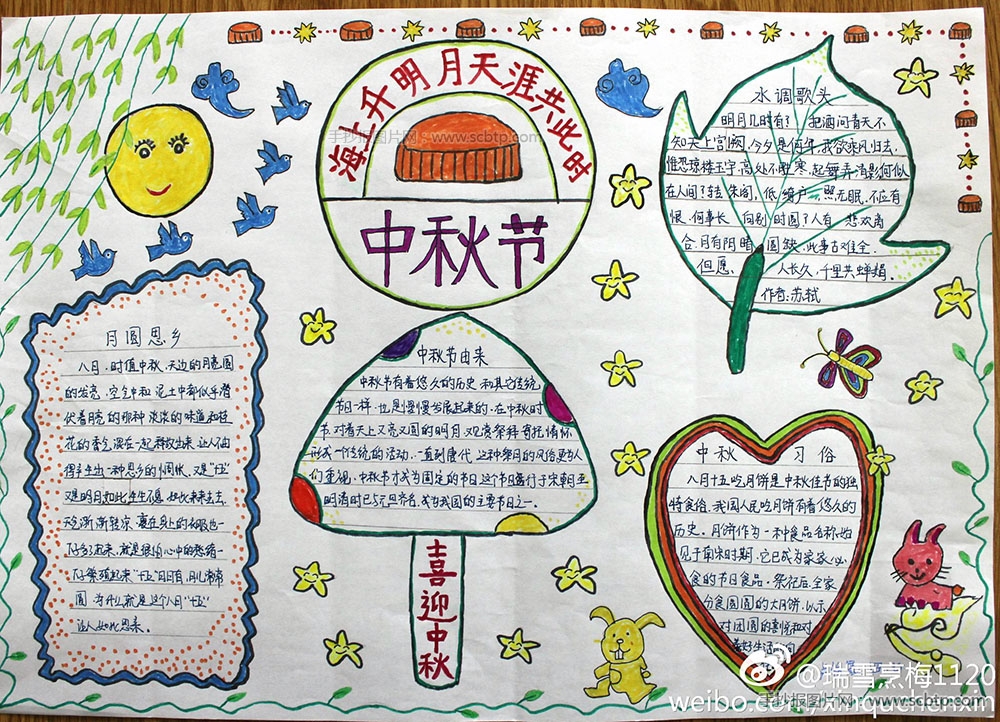 海上升明月天涯共此时
中秋节
手抄报图片网：www.scbtp.com
水调歌头
明月几时有？把酒问青天不
知天上宫阙,今夕是何年.我欲乘风归去,
惟恐琼楼玉宇,高处不胜寒,起舞弄清影何似
在人间？转朱阁,低绮户,照无眠.不应有
恨,何事长向别时圆？人有悲欢离
合,月有阴晴圆缺,此事古难全.
但愿人长久,千里共婵娟.
作者:苏轼
月圆思乡
八月,时值中秋,天边的月亮圆
的发亮,空气中和泥土中都似乎潜
伏着月亮的那种淡淡的味道和桂
花的香气混在一起释放出来,让人不由
得产生出一种思乡的惆怅,又是"十五"
又是明月如此生生不息,如此来来去去
天气渐渐转凉,
好多了起来,就是很怕心中的愁绪一
让人如此思亲。
中秋节由来
中秋节有着悠久的历史,和其它传统
节日一样,也是慢慢发展起来的,在中秋时
节,对着天上又亮又圆的明月,观赏祭拜,寄托情怀
形成一个传统的活动,一直到唐代,这种祭月的风俗更为人
们重视,中秋节才成为固定的节日,这个节日盛行于宋朝,至
明清时已与元旦齐名,成为我国的主要节日之一。
喜迎中秋
中秋习俗
八月十五吃月饼是中秋佳节的独
特食俗,我国人民吃月饼有着悠久的
历史,月饼作为一种食品名称,始
见于南宋时期,它已成为家家必
食的节日食品,祭祀后,全家
分食圆圆的大月饼,以示
对团圆的喜悦和对
美好生活
@瑞雪烹梅1120
weibo.com/xinquchenxin
手抄报图片网：www.scbtp.com